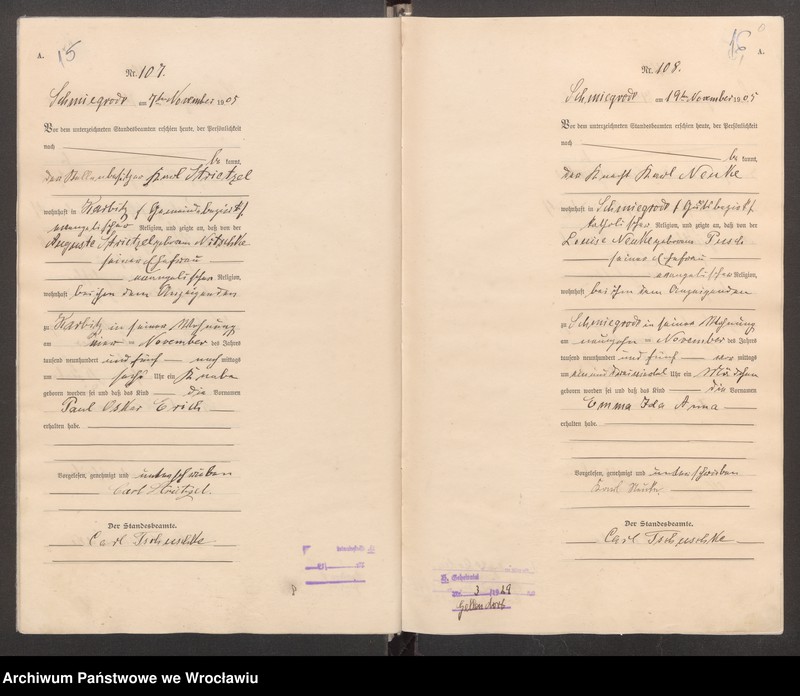 A.
15
Nr. 107.
Schmiegrode am 7ten November 1905
Vor dem unterzeichneten Standesbeamten erschien heute, der Persönlichkeit
nach
be kannt,
der Stellenbesitzer Karl Strietzel
wohnhaft in Karbitz, Gemeindebezirk
evangelischer Religion, und zeigte an, daß von der
Auguste Strietzel geboren Nitschke
seiner Ehefrau
evangelischer Religion,
wohnhaft bei ihm dem Anzeigenden
zu Karbitz in seiner Wohnung
am November des Jahres
tausend neunhundert und fünf nach mittags
um sechs Uhr ein Knabe
geboren worden sei und daß das Kind die Vornamen
Paul Oskar Erich
erhalten habe.
Vorgelesen, genehmigt und unterschrieben
Carl Strietzel.
Der Standesbeamte.
Carl Tschuschke
16
A.
Nr. 108.
Schmiegrode am 19ten November 1905
Vor dem unterzeichneten Standesbeamten erschien heute, der Persönlichkeit
nach
be kannt,
der Knecht Karl Neuke
wohnhaft in Schmiegrode, Gutsbezirk
katholischer Religion, und zeigte an, daß von der
Louise Neuke geboren
seiner Ehefrau
evangelischer Religion,
wohnhaft bei ihm dem Anzeigenden
zu Schmiegrode in seiner Wohnung
am neunzehn November des Jahres
tausend neunhundert und fünf vor mittags
um ein und dreiviertel Uhr ein Mädchen
geboren worden sei und daß das Kind die Vornamen
Emma Ida Anna
erhalten habe.
Vorgelesen, genehmigt und unterschrieben
Der Standesbeamte.
Carl Tschuschke
Gellendorf
Archiwum Państwowe we Wrocławiu